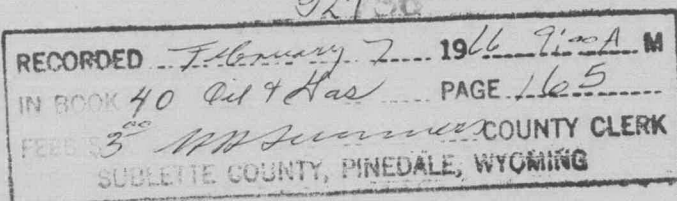 RECORDED February 7 1966 9:00 A M
IN BOOK 40 Oil & Gas PAGE 165
FEES $ 3.00 COUNTY CLERK
SUBLETTE COUNTY, PINEDALE, WYOMING